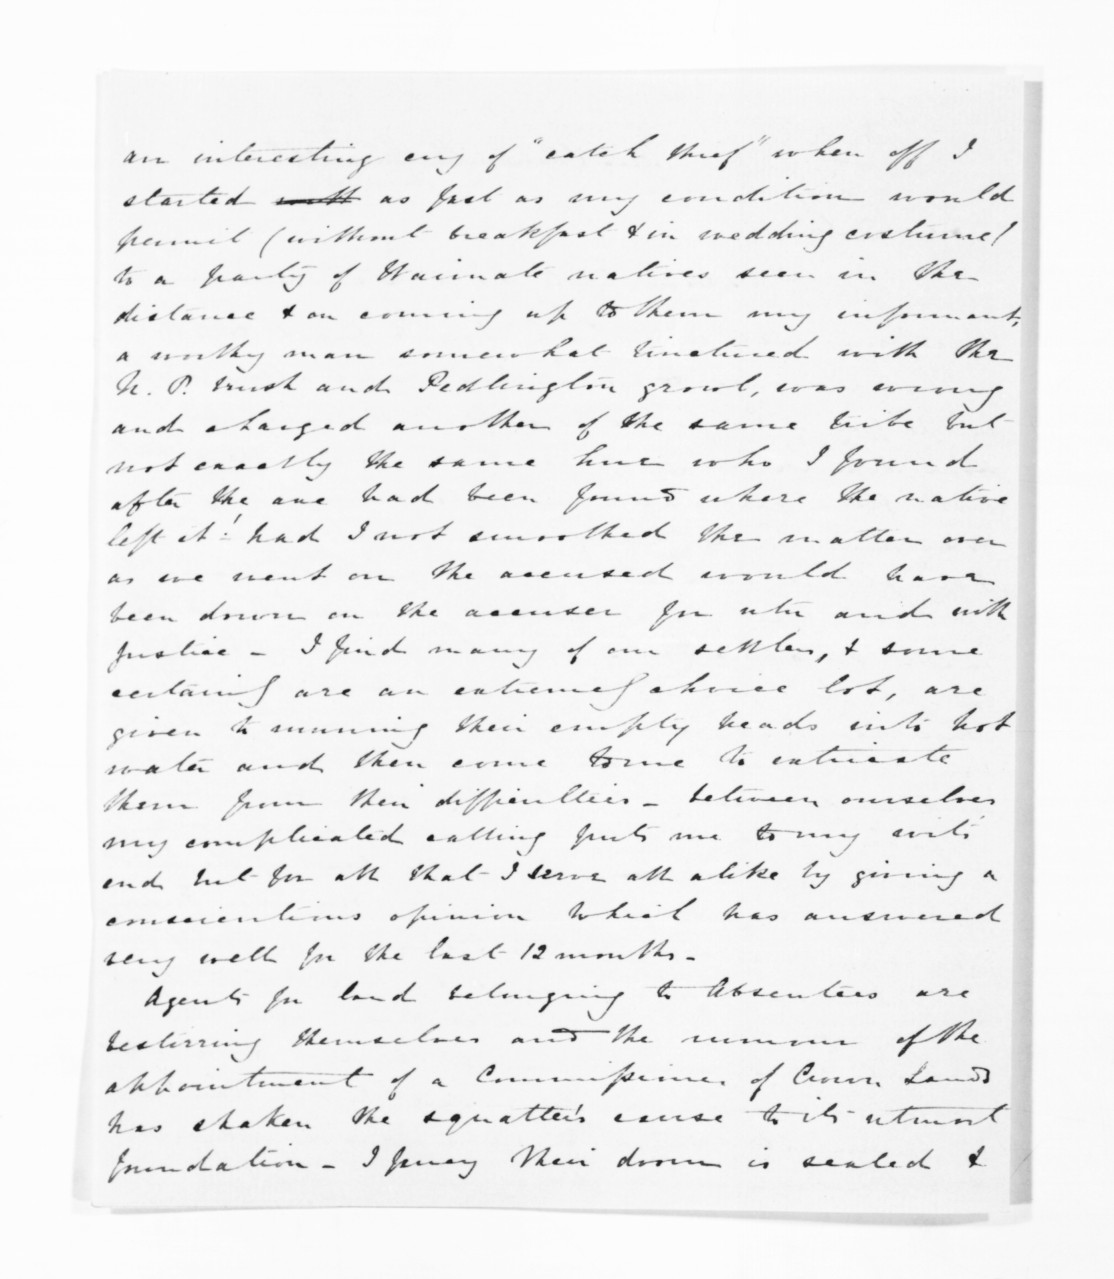 an interesting cry of "catch thief" when off I
started with as fast as my condition would
permit (without breakfast & in wedding costume)
to a party of Waimate natives seen in the
distance & on coming up to them my informant,
a worthy man somewhat tinctured with the
N. P. trust and Pedlington growl, was wrong
and charged another of the same tribe but
not exactly the same hue who I found
after the axe had been found where the native
left it! had I not smoothed the matter over
as we went on the accused would have
been down on the accuser for utu and with
justice - I find many of our settlers, & some
certainly are an extremely choice lot, are
given to running their empty heads into hot
water and then come to me to extricate
them from their difficulties - between ourselves
my complicated calling puts me to my wits
end but for all that I serve all alike by giving a
conscientious opinion which has answered
very well for the last 12 months -
Agents for land belonging to Absentees are
bestirring themselves and the rumour of the
appointment of a Commissioner of Crown Lands
has shaken the squatter's cause to its utmost
foundation - I fancy their doom is sealed &